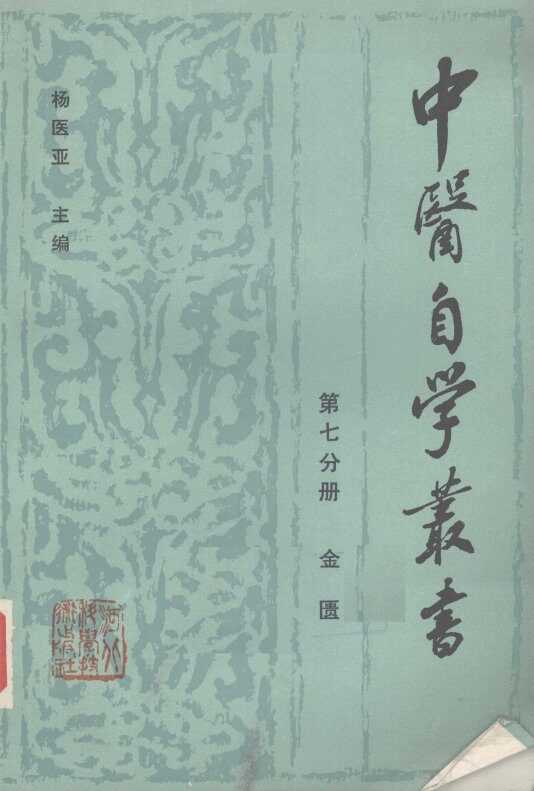 中醫自学叢書
第七分册 金匮
杨医亚 主编
河北
科學技
術出版社